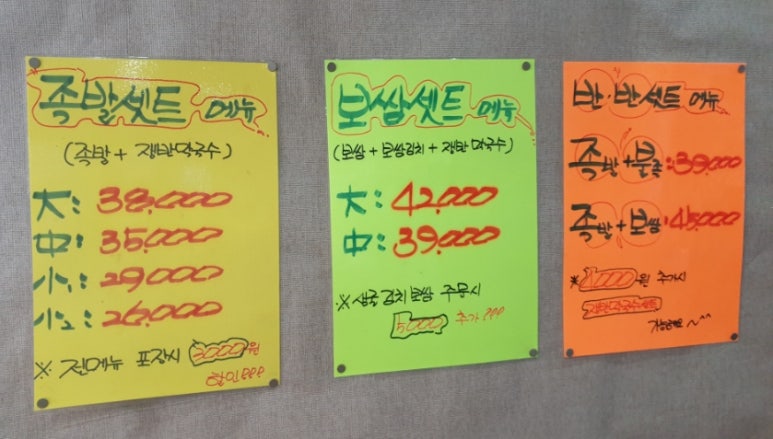 족발셋트 메뉴
(족발 + 쟁반막국수)
大: 38,000
中: 35,000
小1: 29,000
小2: 26,000
※ 전메뉴 포장시 3000원
할인
보쌈셋트 메뉴
(보쌈 + 보쌈김치 + 쟁반막국수)
大: 42,000
中: 39,000
※ 생굴김치보쌈 주문시
5000 추가
반·반셋트 메뉴
족발+불족:39,000
족발+보쌈:45,000
※ 4000원 추가시
쟁반막국수셋트
가능해요~^^